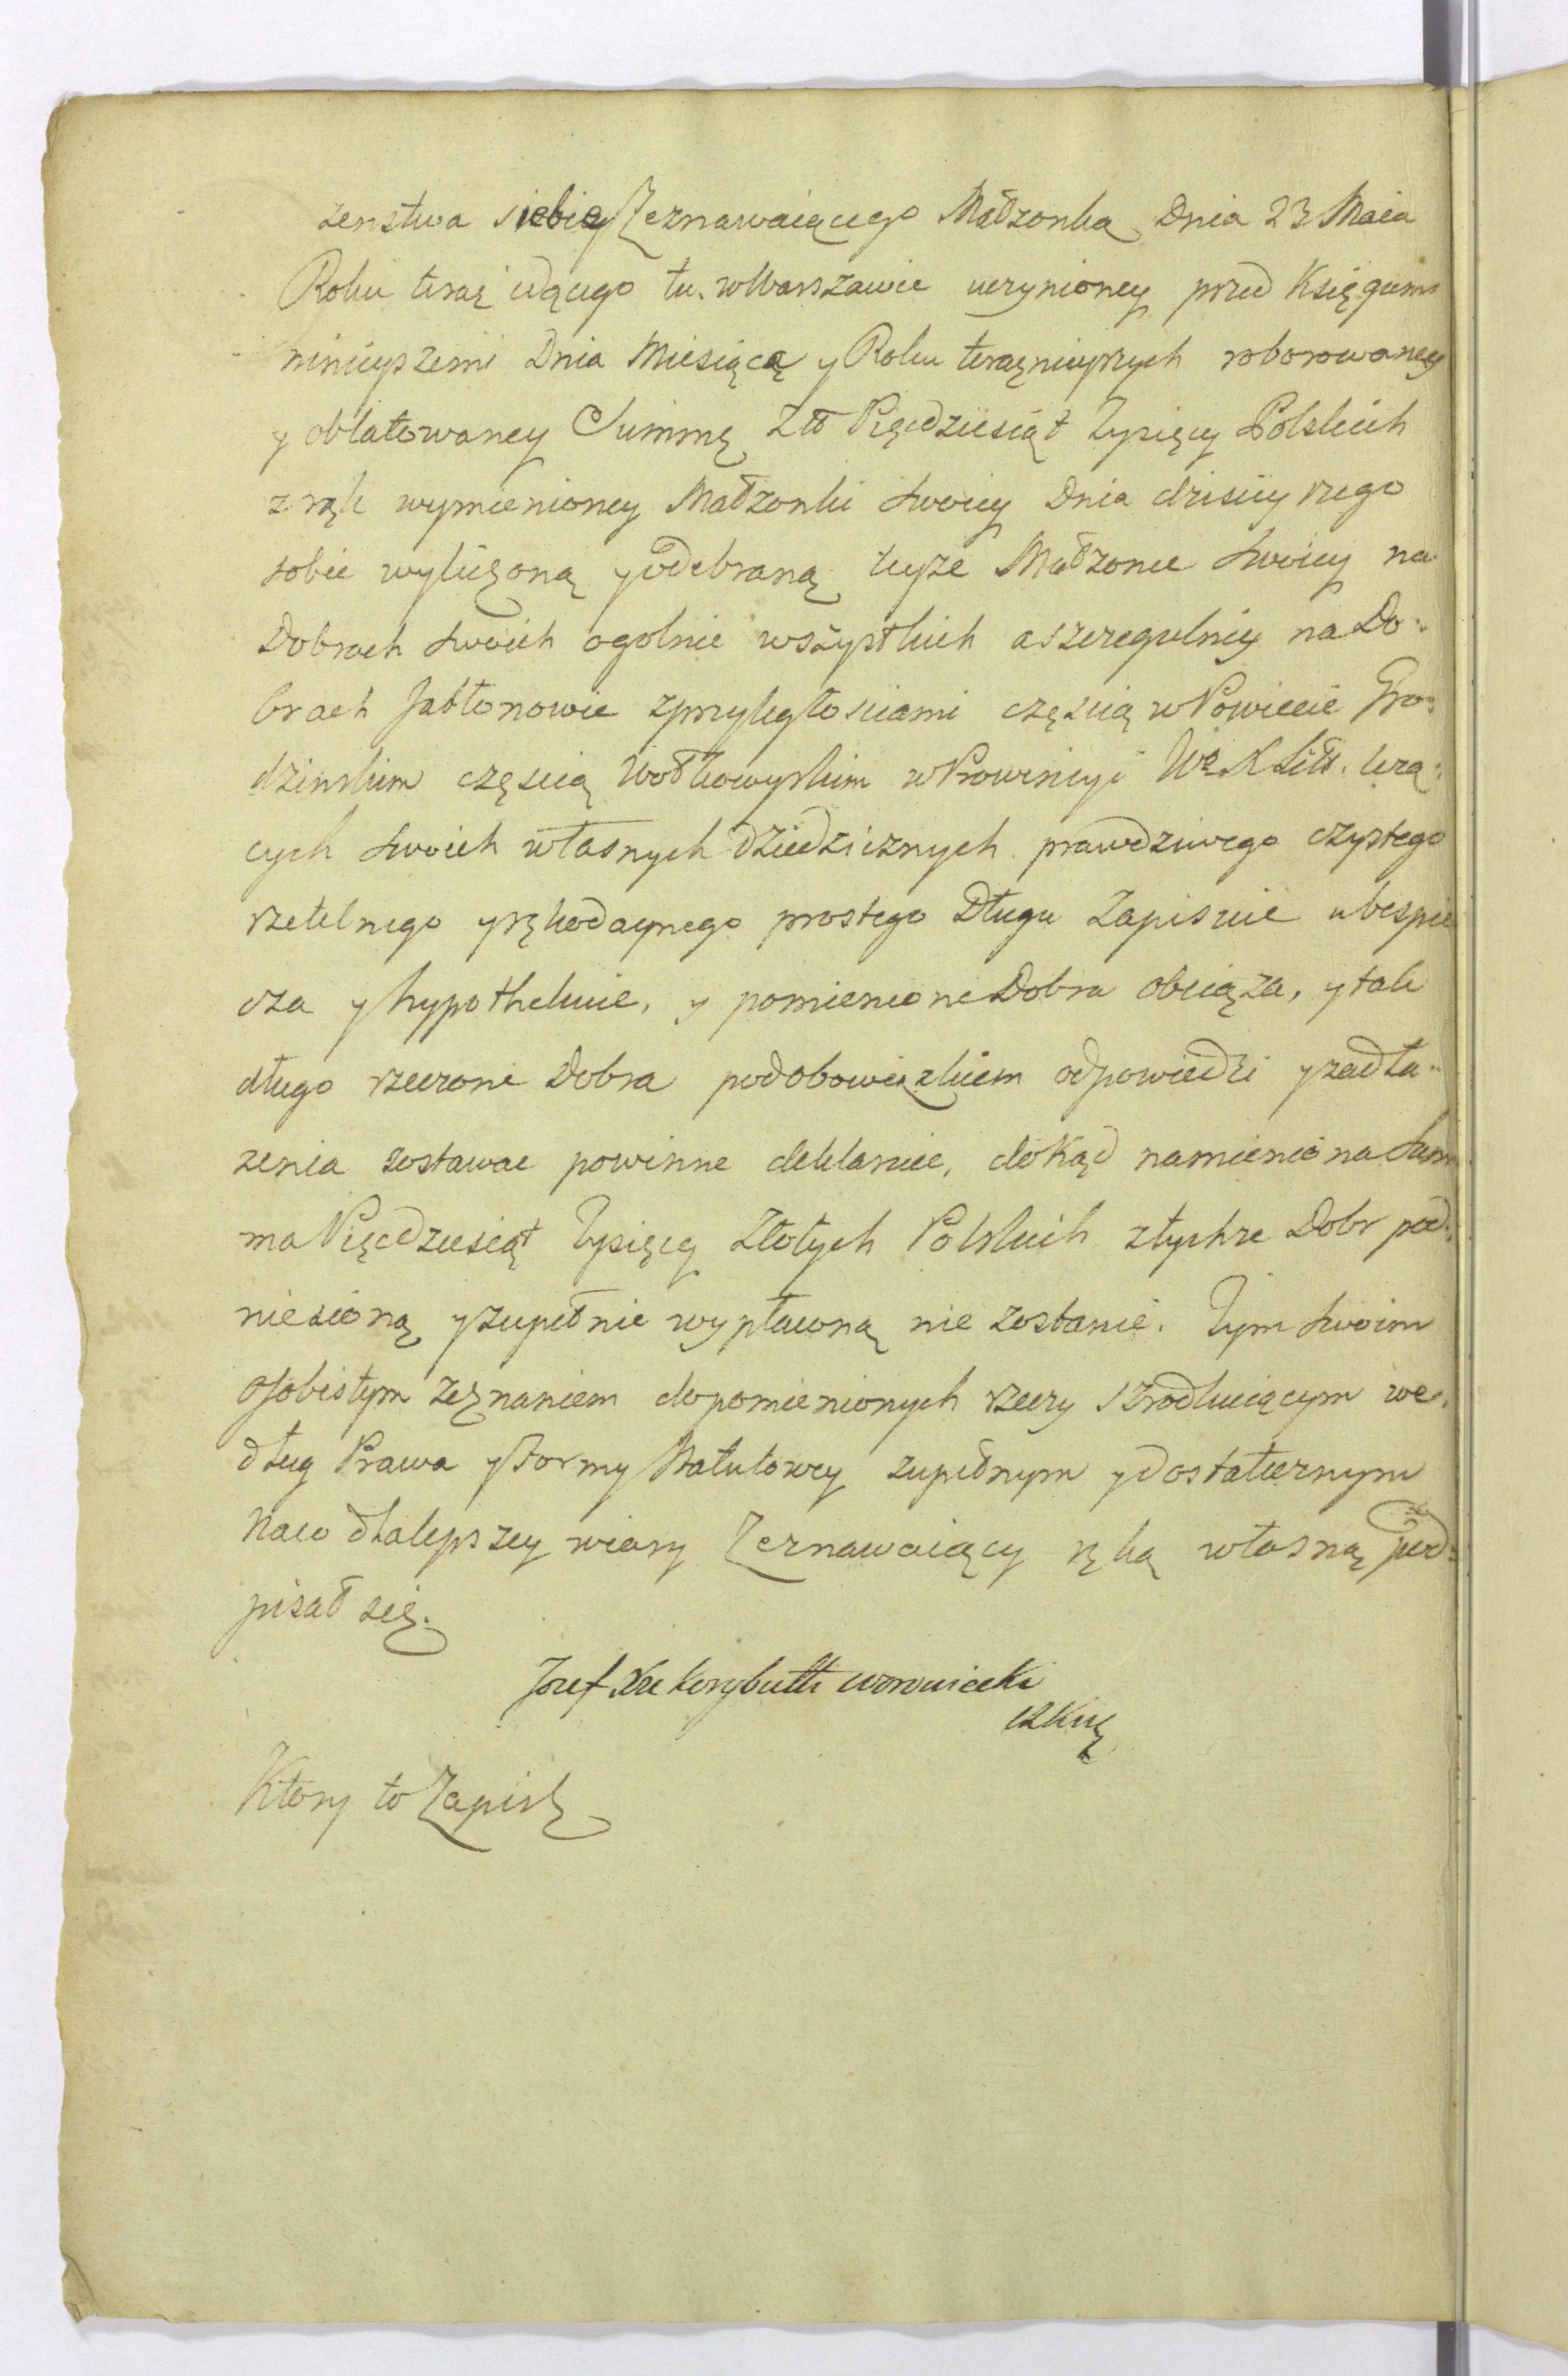 zenstwa siebie Zeznawaiącego Małżonka Dnia 23 Maia
Roku teraz idącego tu w Warszawie uczynioney przed Xięgami
ninieyszemi Dnia Miesiąca y Roku teraznieyszych roborowaney
y oblatowaney Summę Złł Pięcdziesiąt Tysięcy Polskich
z rąk wymienioney Małżonki swoiey Dnia dzisieyszego
sobie wyliczoną y odebraną teyze Małżonce swoiey na
Dobrach swoich ogolnie wszystkich a szczegulniey na Do:
brach Jabłonowie z przyległosciami częscią w Powiecie Gro:
dzinskim częscią Wołkowyskim w Prowincyi W° X Litt. lezą:
cych swoich własnych dziedzicznych prawdziwego czystego
rzetelnego y rękodaynego prostego Długu Zapisuie ubespie
cza y hypothekuie, y pomienione Dobra obciąza, y tak
długo rzeczone Dobra pod obowiązkiem odpowiedzi y zadłu:
zenia zostawac powinne deklaruie, dokąd namieniona Sum
ma Pięcdziesiąt Tysięcy Złotych Polskich z tychze Dobr pod:
niesioną y zupełnie wypłaconą nie zostanie. Tym swoim
osobistym zeznaniem do pomienionych rzeczy szrodkuiącym we:
dług Prawa y Formy Statutowey zupełnym y dostatecznym
Na co dla lepszey wiary Zeznawaiący ręką własną pod:
pisał się.
Jozef Xże Korybutt Woroniecki
Ktory to Zapis